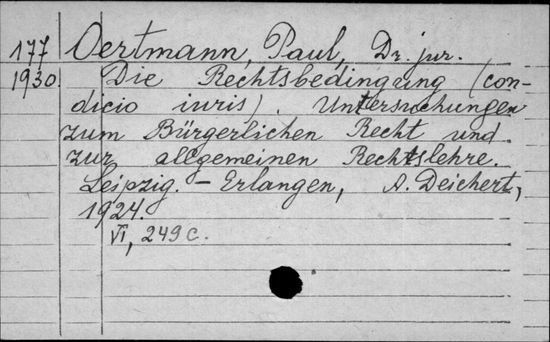 177 Oertmann, Paul, Dr. jur.
1930. Die Rechtsbedingung (con-
dicio iuris). Untersuchungen
zum Bürgerlichen Recht und
zur allgemeinen Rechtslehre.
Leipzig. - Erlangen, A. Deichert,
1924.
VI, 249 c.